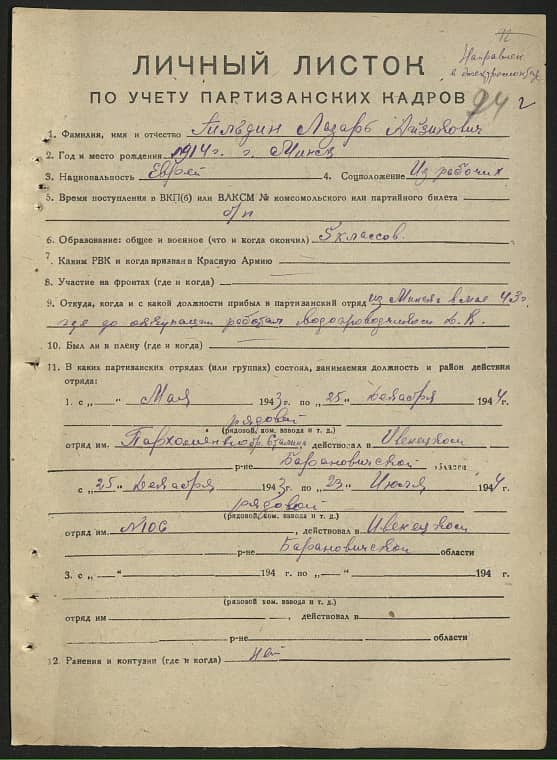 12
Направлен
в
94 г
ЛИЧНЫЙ ЛИСТОК
ПО УЧЕТУ ПАРТИЗАНСКИХ КАДРОВ
1. Фамилия, имя и отчество Гильдин Лазарь Айзикович
2. Год и место рождения 1914 г. г. Минск
3. Национальность Еврей 4. Соцположение Из рабочих
5. Время поступления в ВКП(б) или ВЛКСМ № комсомольского или партийного билета
б/п
6. Образование: общее и военное (что и когда окончил) 5 классов.
7. Каким РВК и когда призван в Красную Армию
8. Участие на фронтах (где и когда)
9. Откуда, когда и с какой должности прибыл в партизанский отряд из Минска в мае 43 г.
где до оккупации работал
10. Был ли в плену (где и когда)
11. В каких партизанских отрядах (или группах) состоял, занимаемая должность и район действия
отряда:
1. с „ — “ Мая 1943 г. по „25“ декабря 1944 г.
рядовой
(рядовой, ком. взвода и т. д.)
отряд им. Пархоменко бр. Сталина, действовал в Ивенецком
р-не Барановичской области
с „25“ декабря 1943 г. по „23“ Июля 1944 г.
рядовой
(рядовой, ком. взвода и т. д.)
отряд им. №106, действовал в Ивенецком
р-не Барановичской области
3. с „ — “ 194 г. по „ — “ 194 г.
(рядовой ком. взвода и т. д.)
отряд им , действовал в
р-не области
12. Ранения и контузии (где и когда) нет